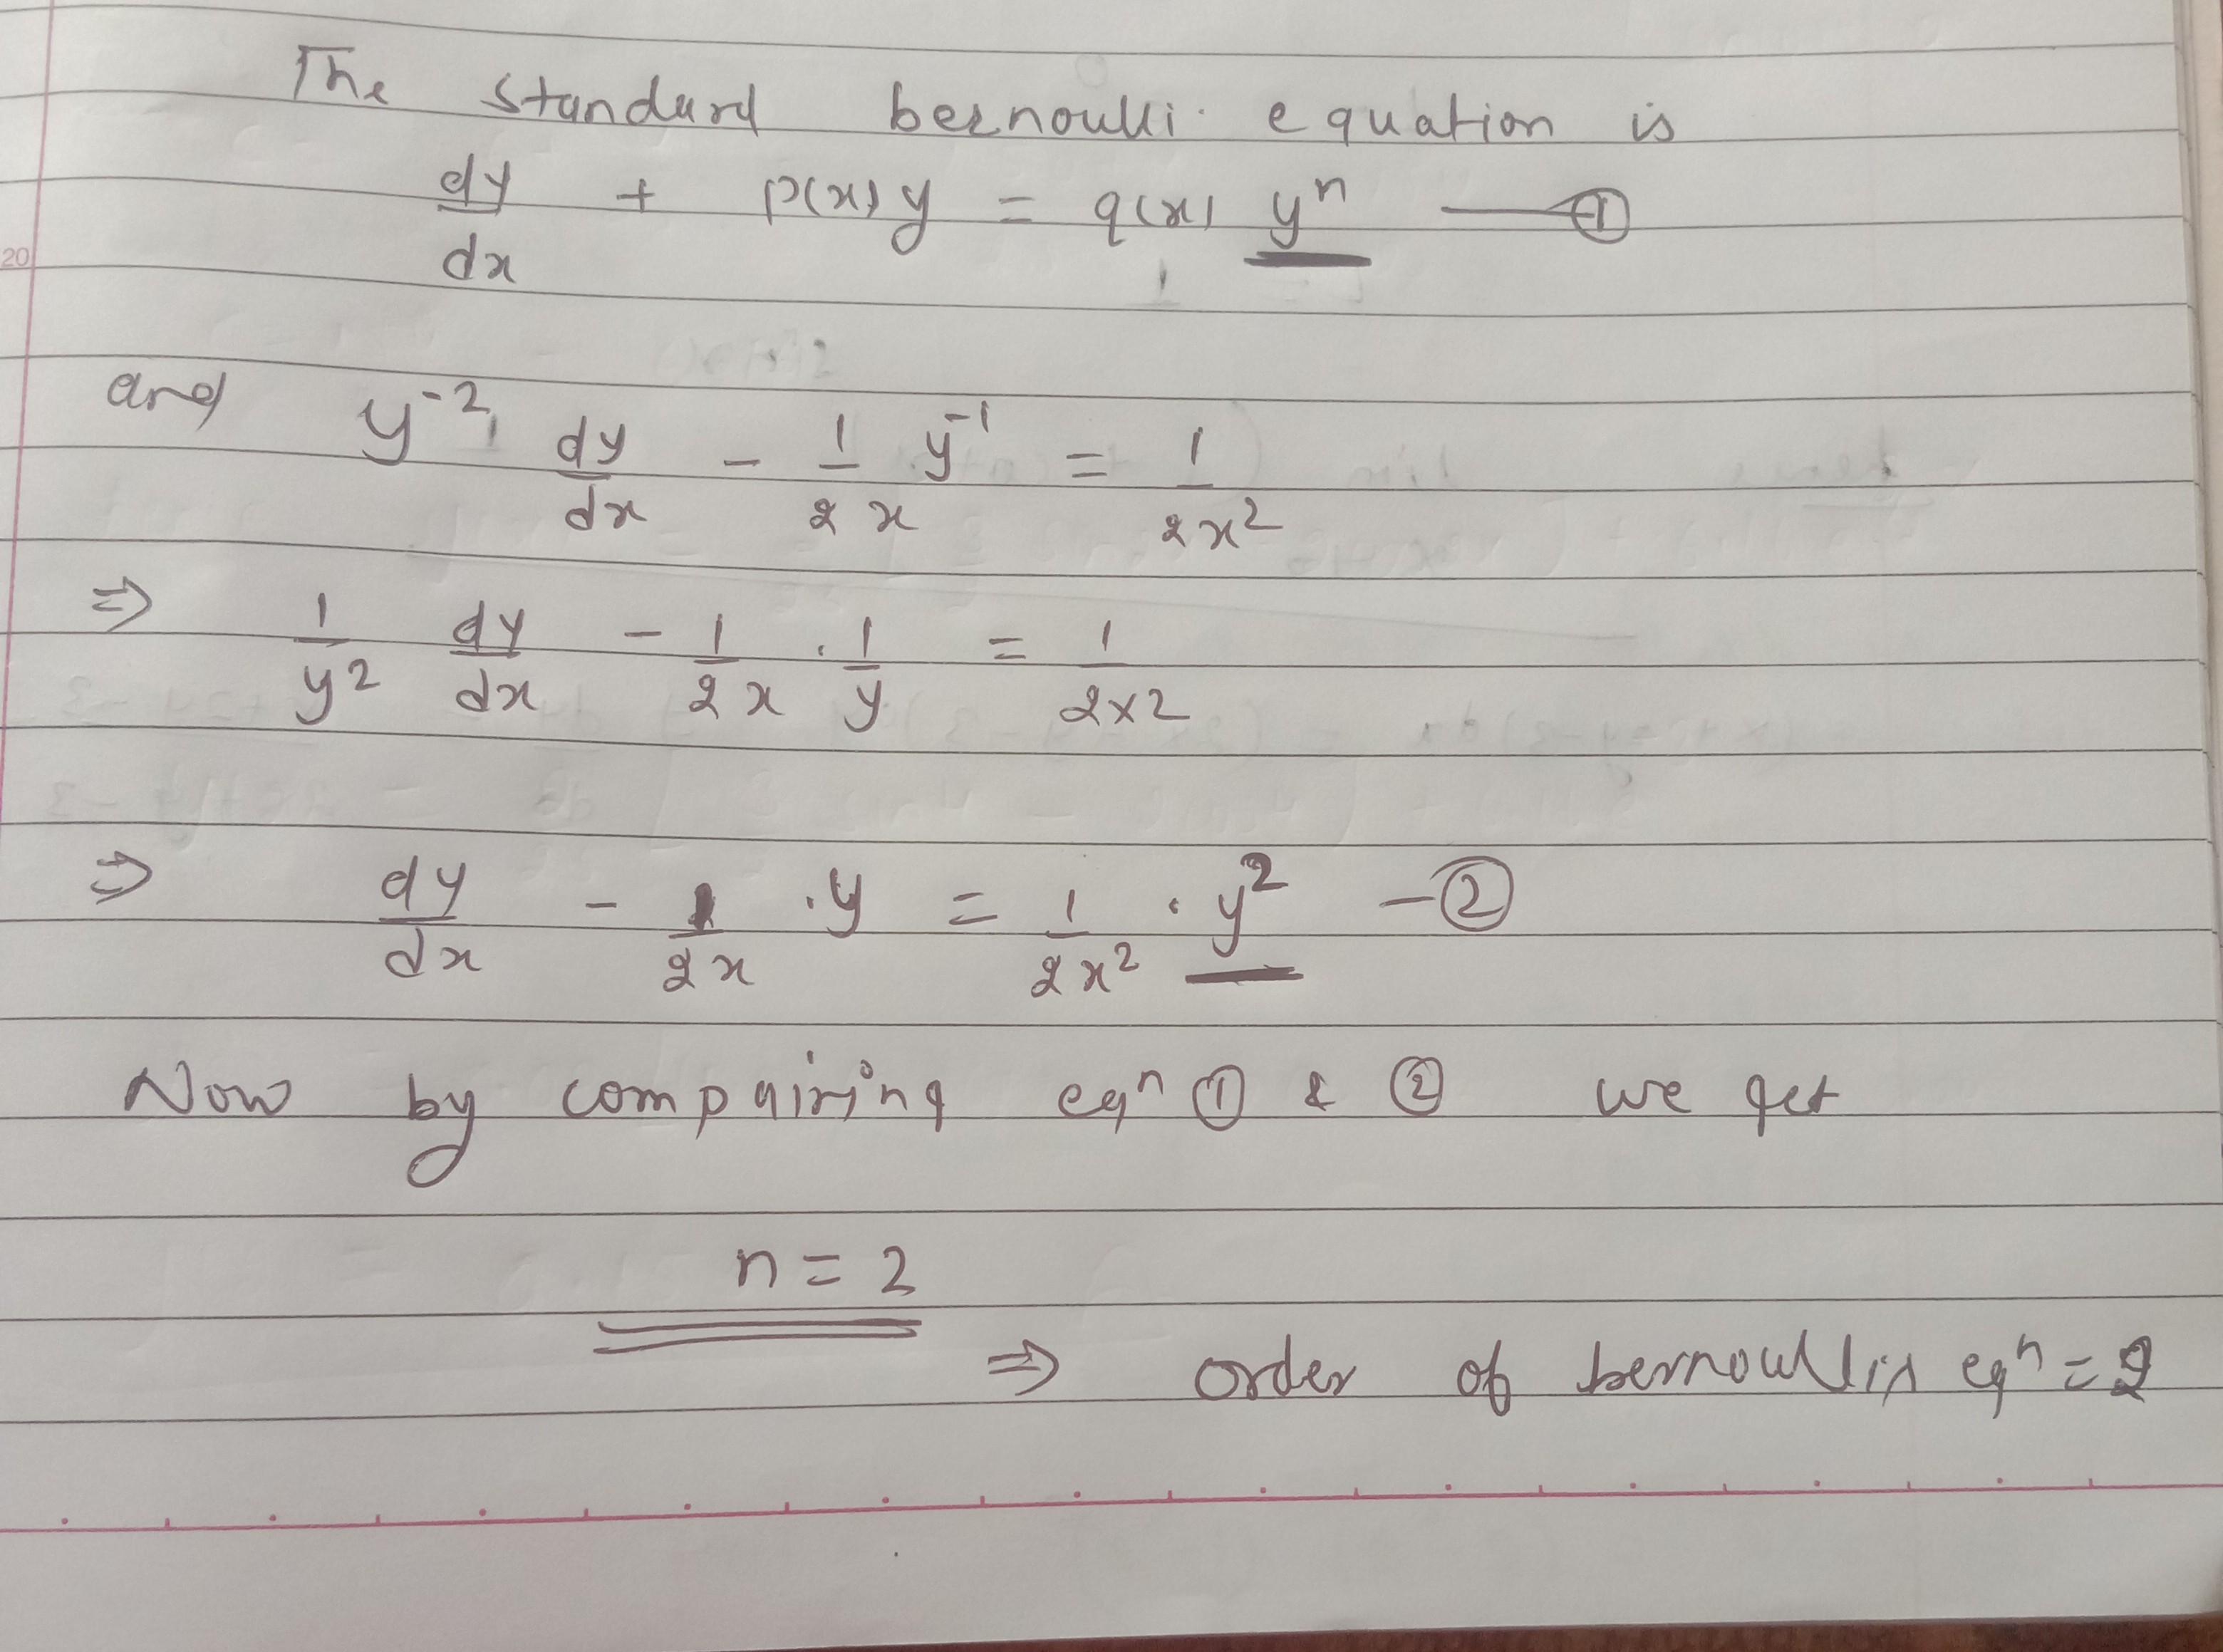 The standard bernoulli equation is
dy/dx + p(x) y = q(x) yⁿ — ①
and y⁻² dy/dx - 1/2x y⁻¹ = 1/2x²
⇒ 1/y² dy/dx - 1/2x · 1/y = 1/2x2
⇒ dy/dx - 1/2x · y = 1/2x² · y² - ②
Now by compairing eqⁿ ① & ② we get
n = 2
⇒ order of bernoullis eqⁿ = 2
20